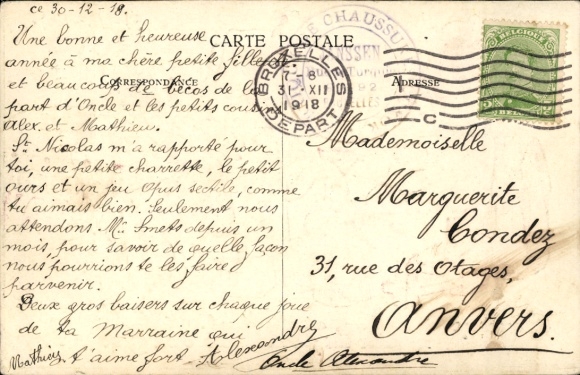 ce 30-12-18.
Une bonne et heureuse
année à ma chère petite filleule
et beaucoup de bécos de la
part d'Oncle et les petits cous.
Alex. et Mathieu.
St. Nicolas m'a rapporté pour
toi, une petite charrette, le petit
ours et un jeu opus sectile, comme
tu aimais bien. Seulement nous
attendons Mr. Smets depuis un
mois, pour savoir de quelle façon
nous pourrions te les faire
parvenir.
Deux gros baisers sur chaque joue
de ta Marraine qui
t'aime fort. Alexandre
Mathieu
Oncle Alexandre
CARTE POSTALE
CORRESPONDANCE
ADRESSE
BRUXELLES
7-8
31 XII
1918
DEPART
C
CHAUSSU
BELGIQUE
5
Mademoiselle
Marguerite
Condez
31, rue des Otages,
Anvers.